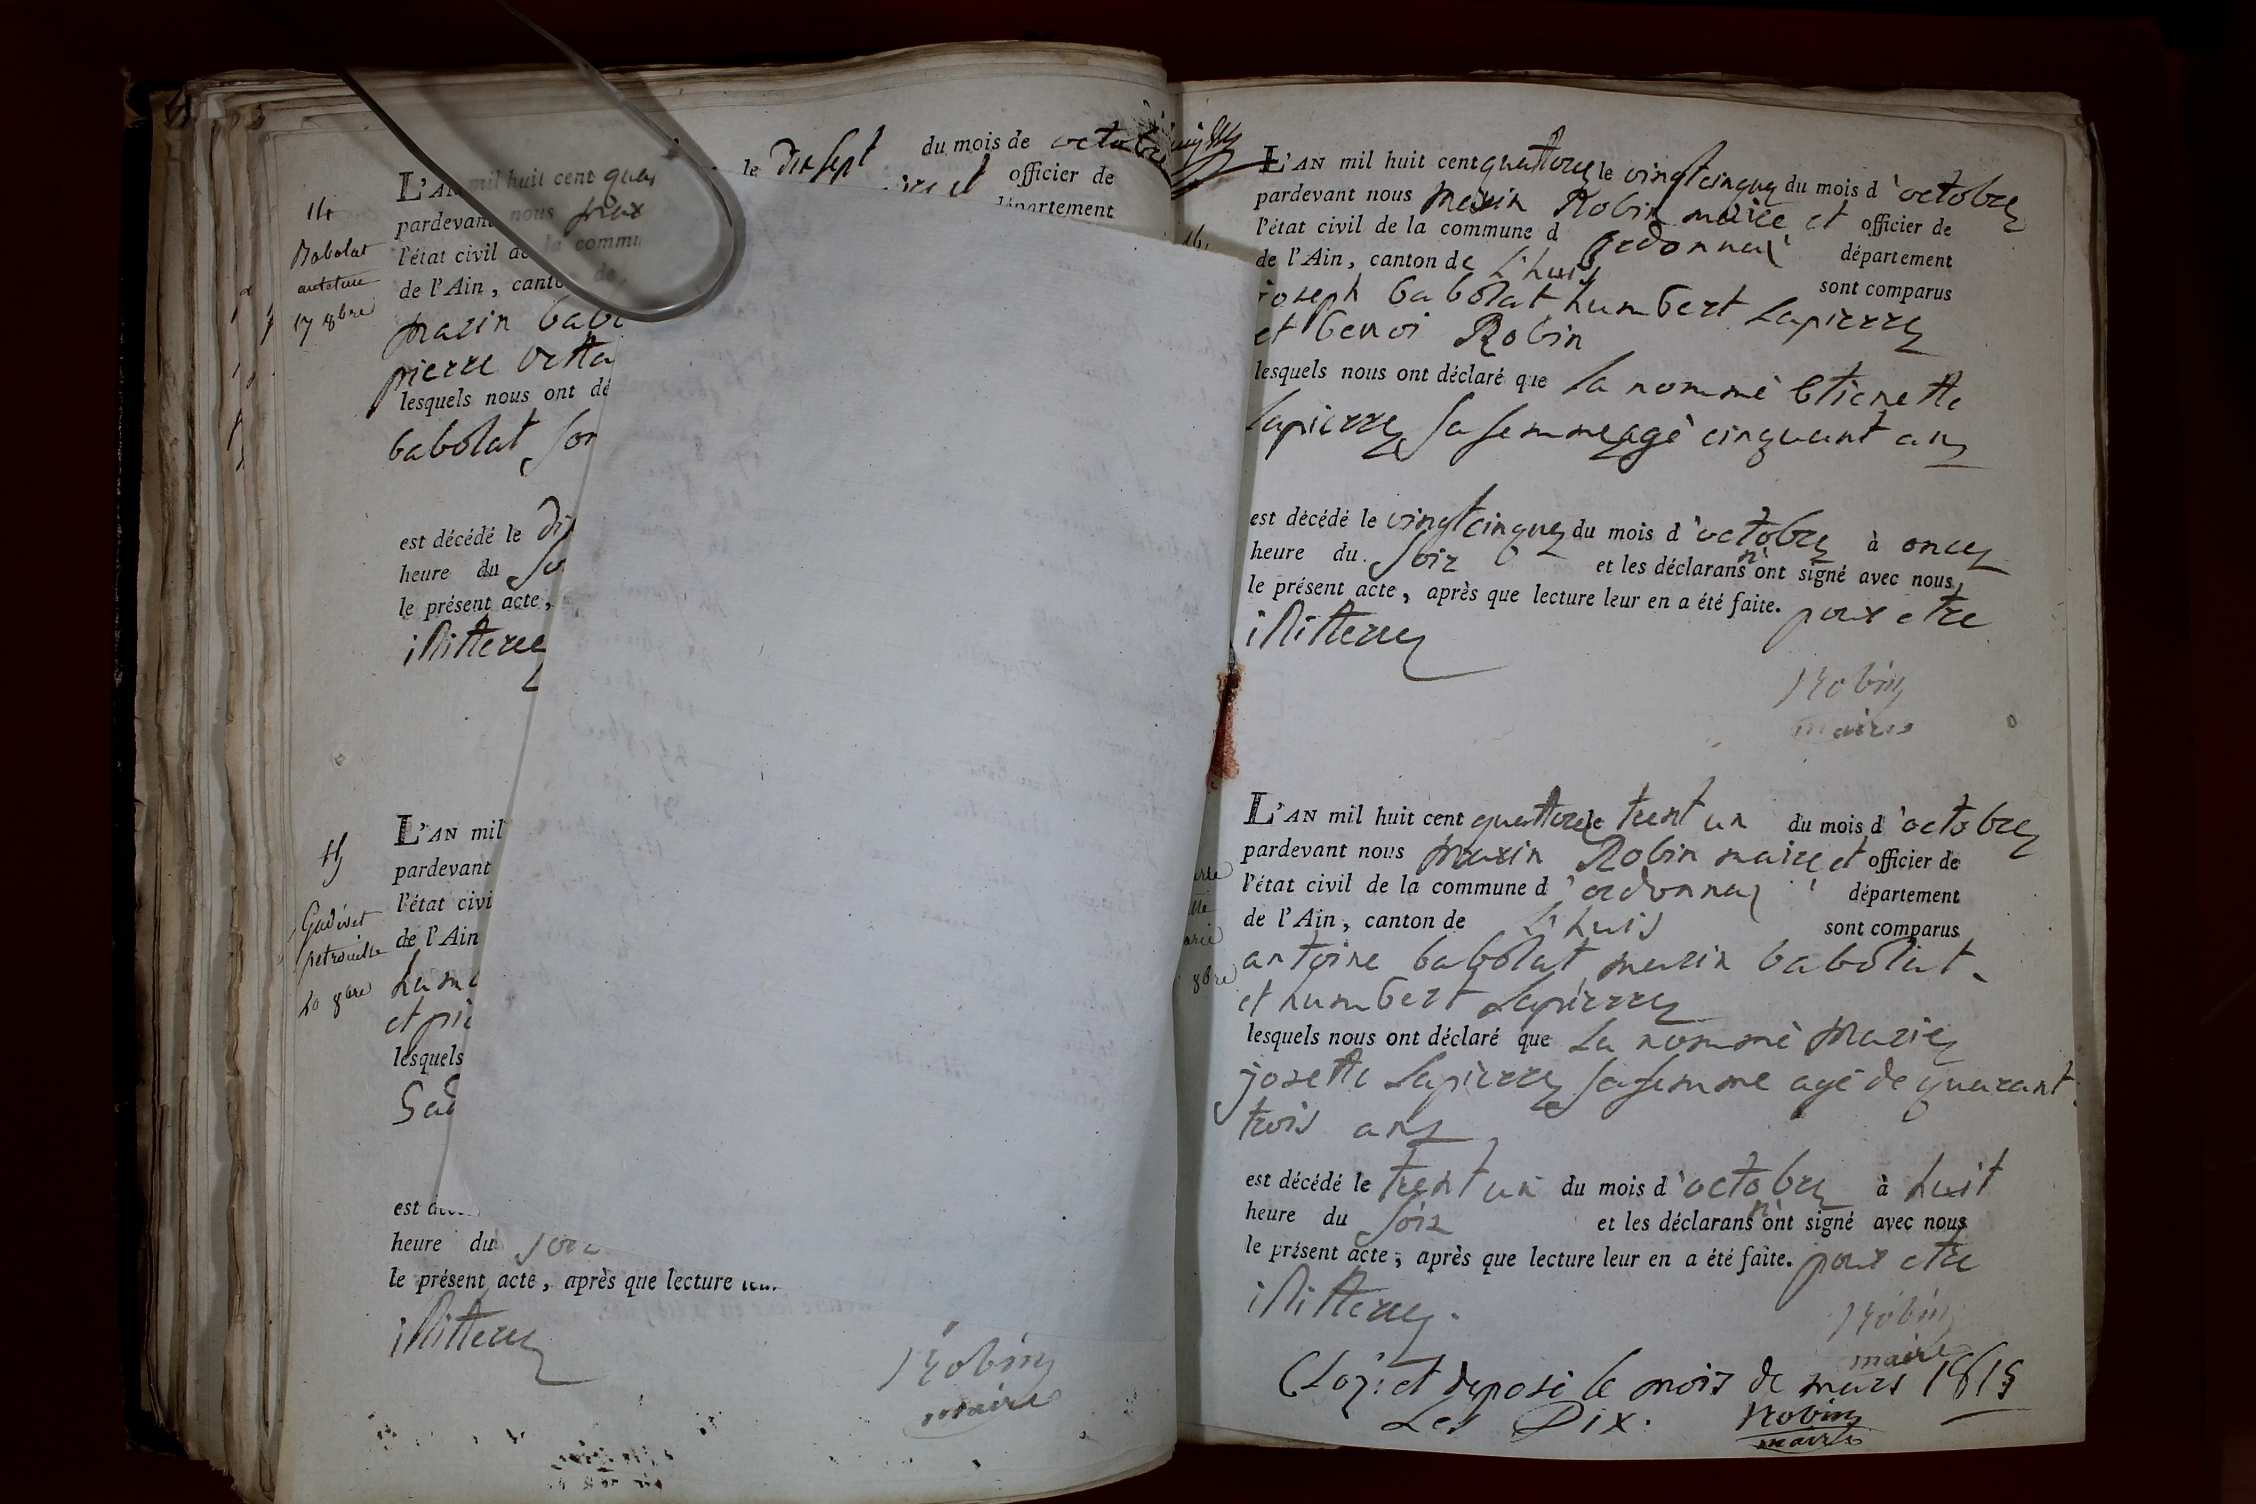 14
Babolat
antoine
17 8bre
L'AN mil huit cent qua
le dix sept du mois de octobre
pardevant nous mar
et officier de
l'état civil de la commu
département
de l'Ain, canto de
marin babo
pierre
lesquels nous ont dé
babolat son
est décédé le di
heure du so
le présent acte,
illitteree
15
Gudivet
petronille
20 8bre
L'AN mil
pardevant
l'état civi
de l'Ain
hum
et pie
lesquels
Gad
est
heure du soir
le présent acte, après que lecture leur
illitterez
Robin
maire
16
L'AN mil huit cent quattorze le vingtcinque du mois d'octobre
pardevant nous marin Robin maire et officier de
l'état civil de la commune d ordonnaz département
de l'Ain, canton de L'huis sont comparus
joseph babolat humbert Lapierre
et benoi Robin
lesquels nous ont déclaré que la nommé Etienette
Lapierre sa femme agé cinquant an
est décédé le vingtcinque du mois d'octobre à once
heure du soir et les déclarans n'ont signé avec nous
le présent acte, après que lecture leur en a été faite. pour etre
illitterez
Robin
maire
8bre
L'AN mil huit cent quattorze le trent un du mois d'octobre
pardevant nous marin Robin maire et officier de
l'état civil de la commune d'ordonnaz département
de l'Ain, canton de L'huis sont comparus
antoine babolat marin babolat
et humbert Lapierre
lesquels nous ont déclaré que La nommé Marie
josette Lapierre sa femme agé de quarant
trois ans
est décédé le trent un du mois d'octobre à huit
heure du soir et les déclarans n'ont signé avec nous
le présent acte, après que lecture leur en a été faite. pour etre
illitterez.
Robin
maire
Cloz et deposé le mois de mars 1815
Les Dix. Robin
maire